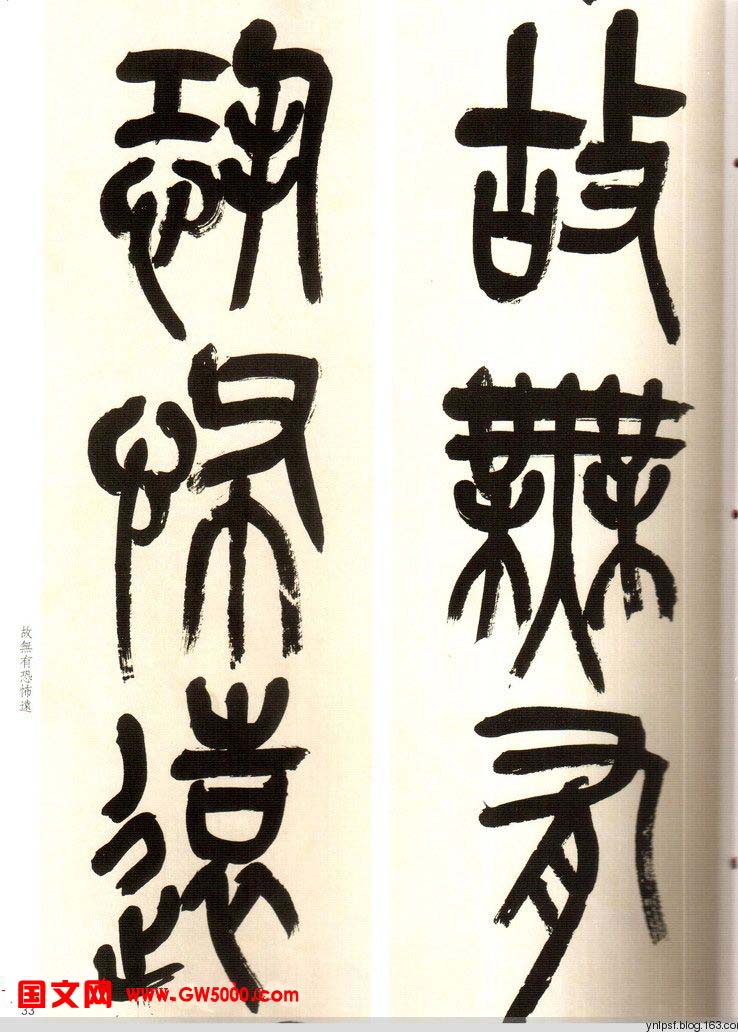 故無有
恐怖遠
故無有恐怖遠
33
国文网 www.GW5000.com
ynlpsf.blog.163.co